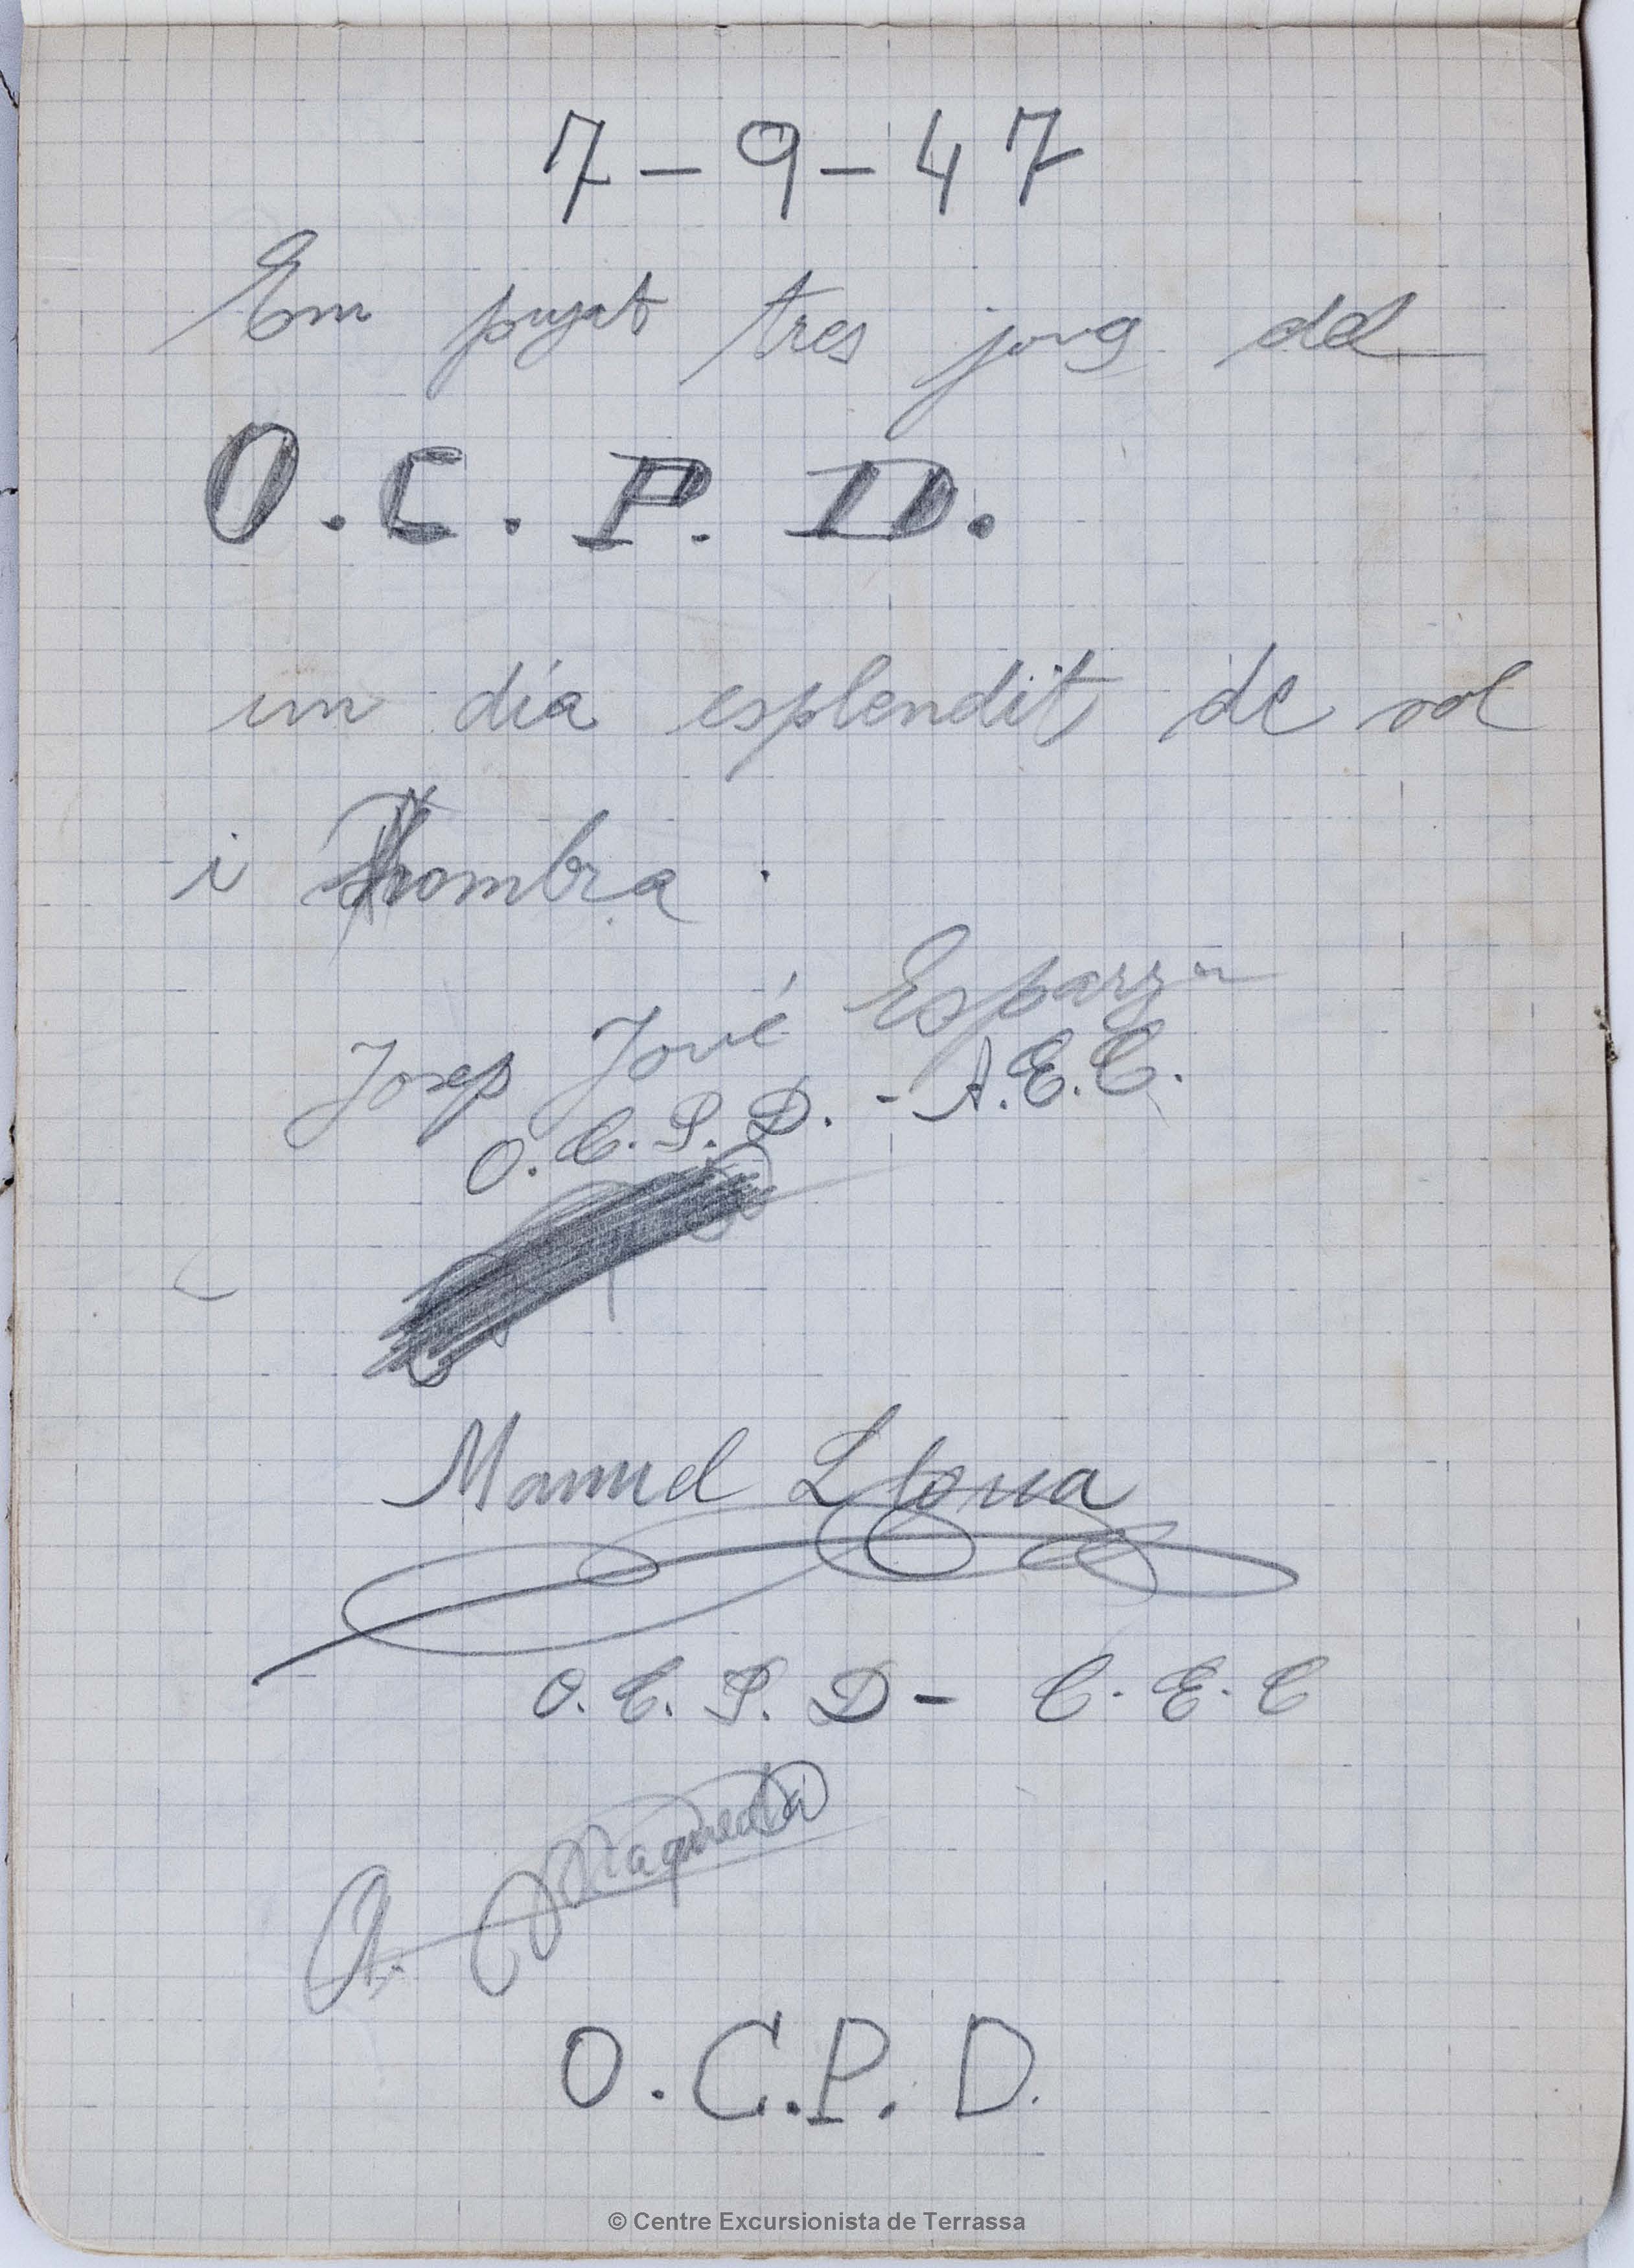 7-9-47
Em pujat tres jovs del
O.C.P.D.
un día esplendit de sol
i hombra.
Josep Jové Esparza
O.C.P.D. - A.E.C.
Manuel Llona
O.C.P.D - C.E.C
O.C.P.D.
© Centre Excursionista de Terrassa